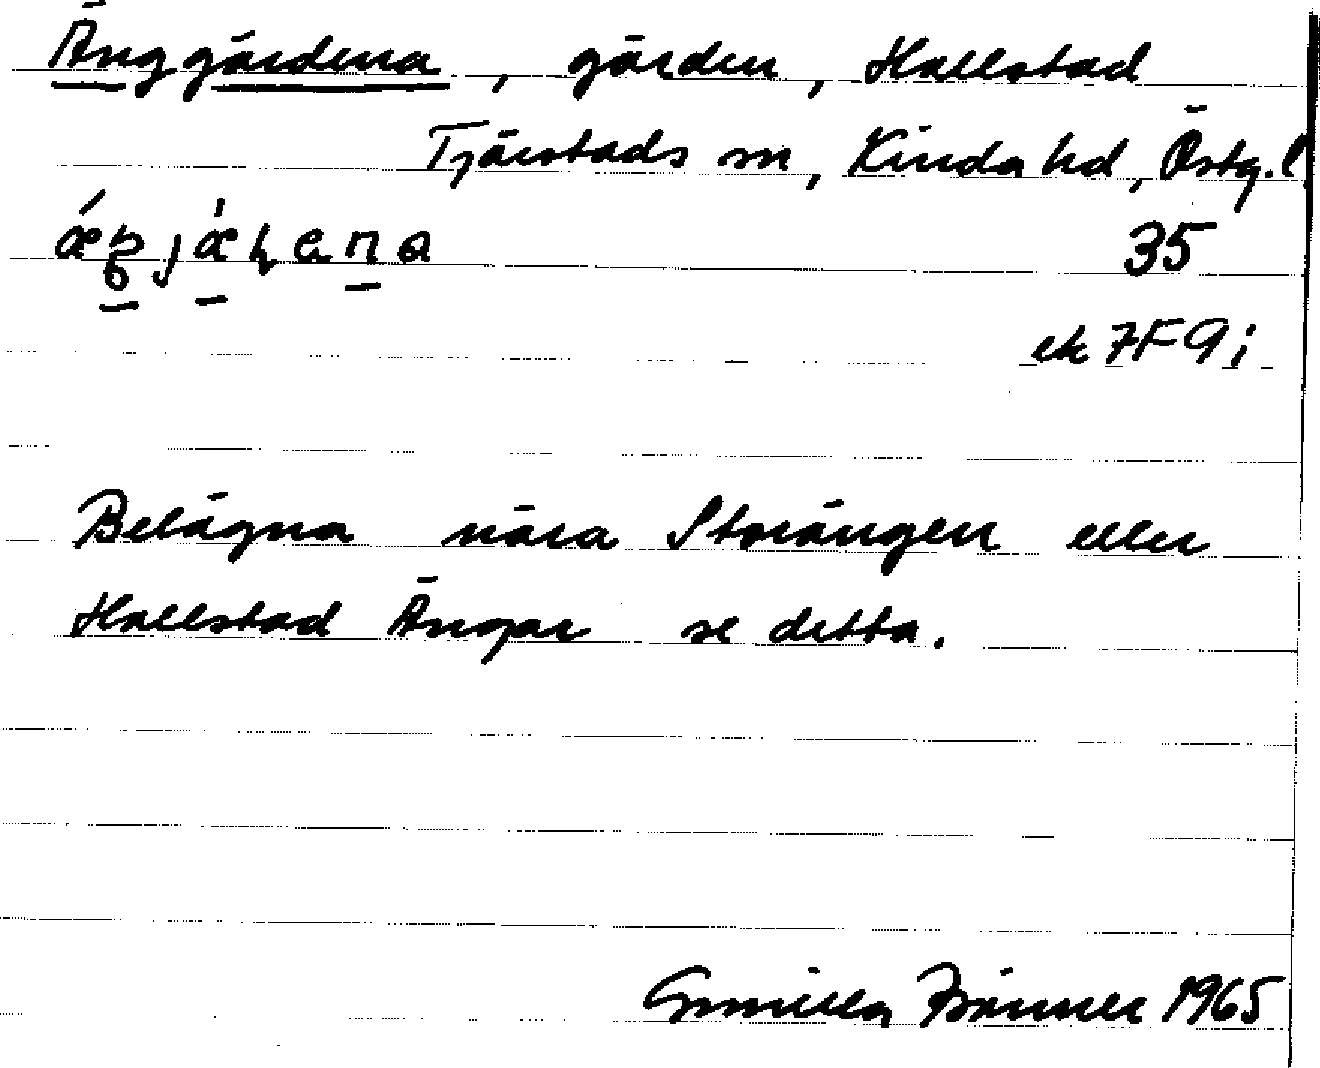 Änggärdena, gärden, Hallstad
Tjärstads sn, Kinda hd, Östg.l
35
ek 7F 9i
Belägna nära Storängen eller
Hallstad Ängar se detta.
Gunilla 1965